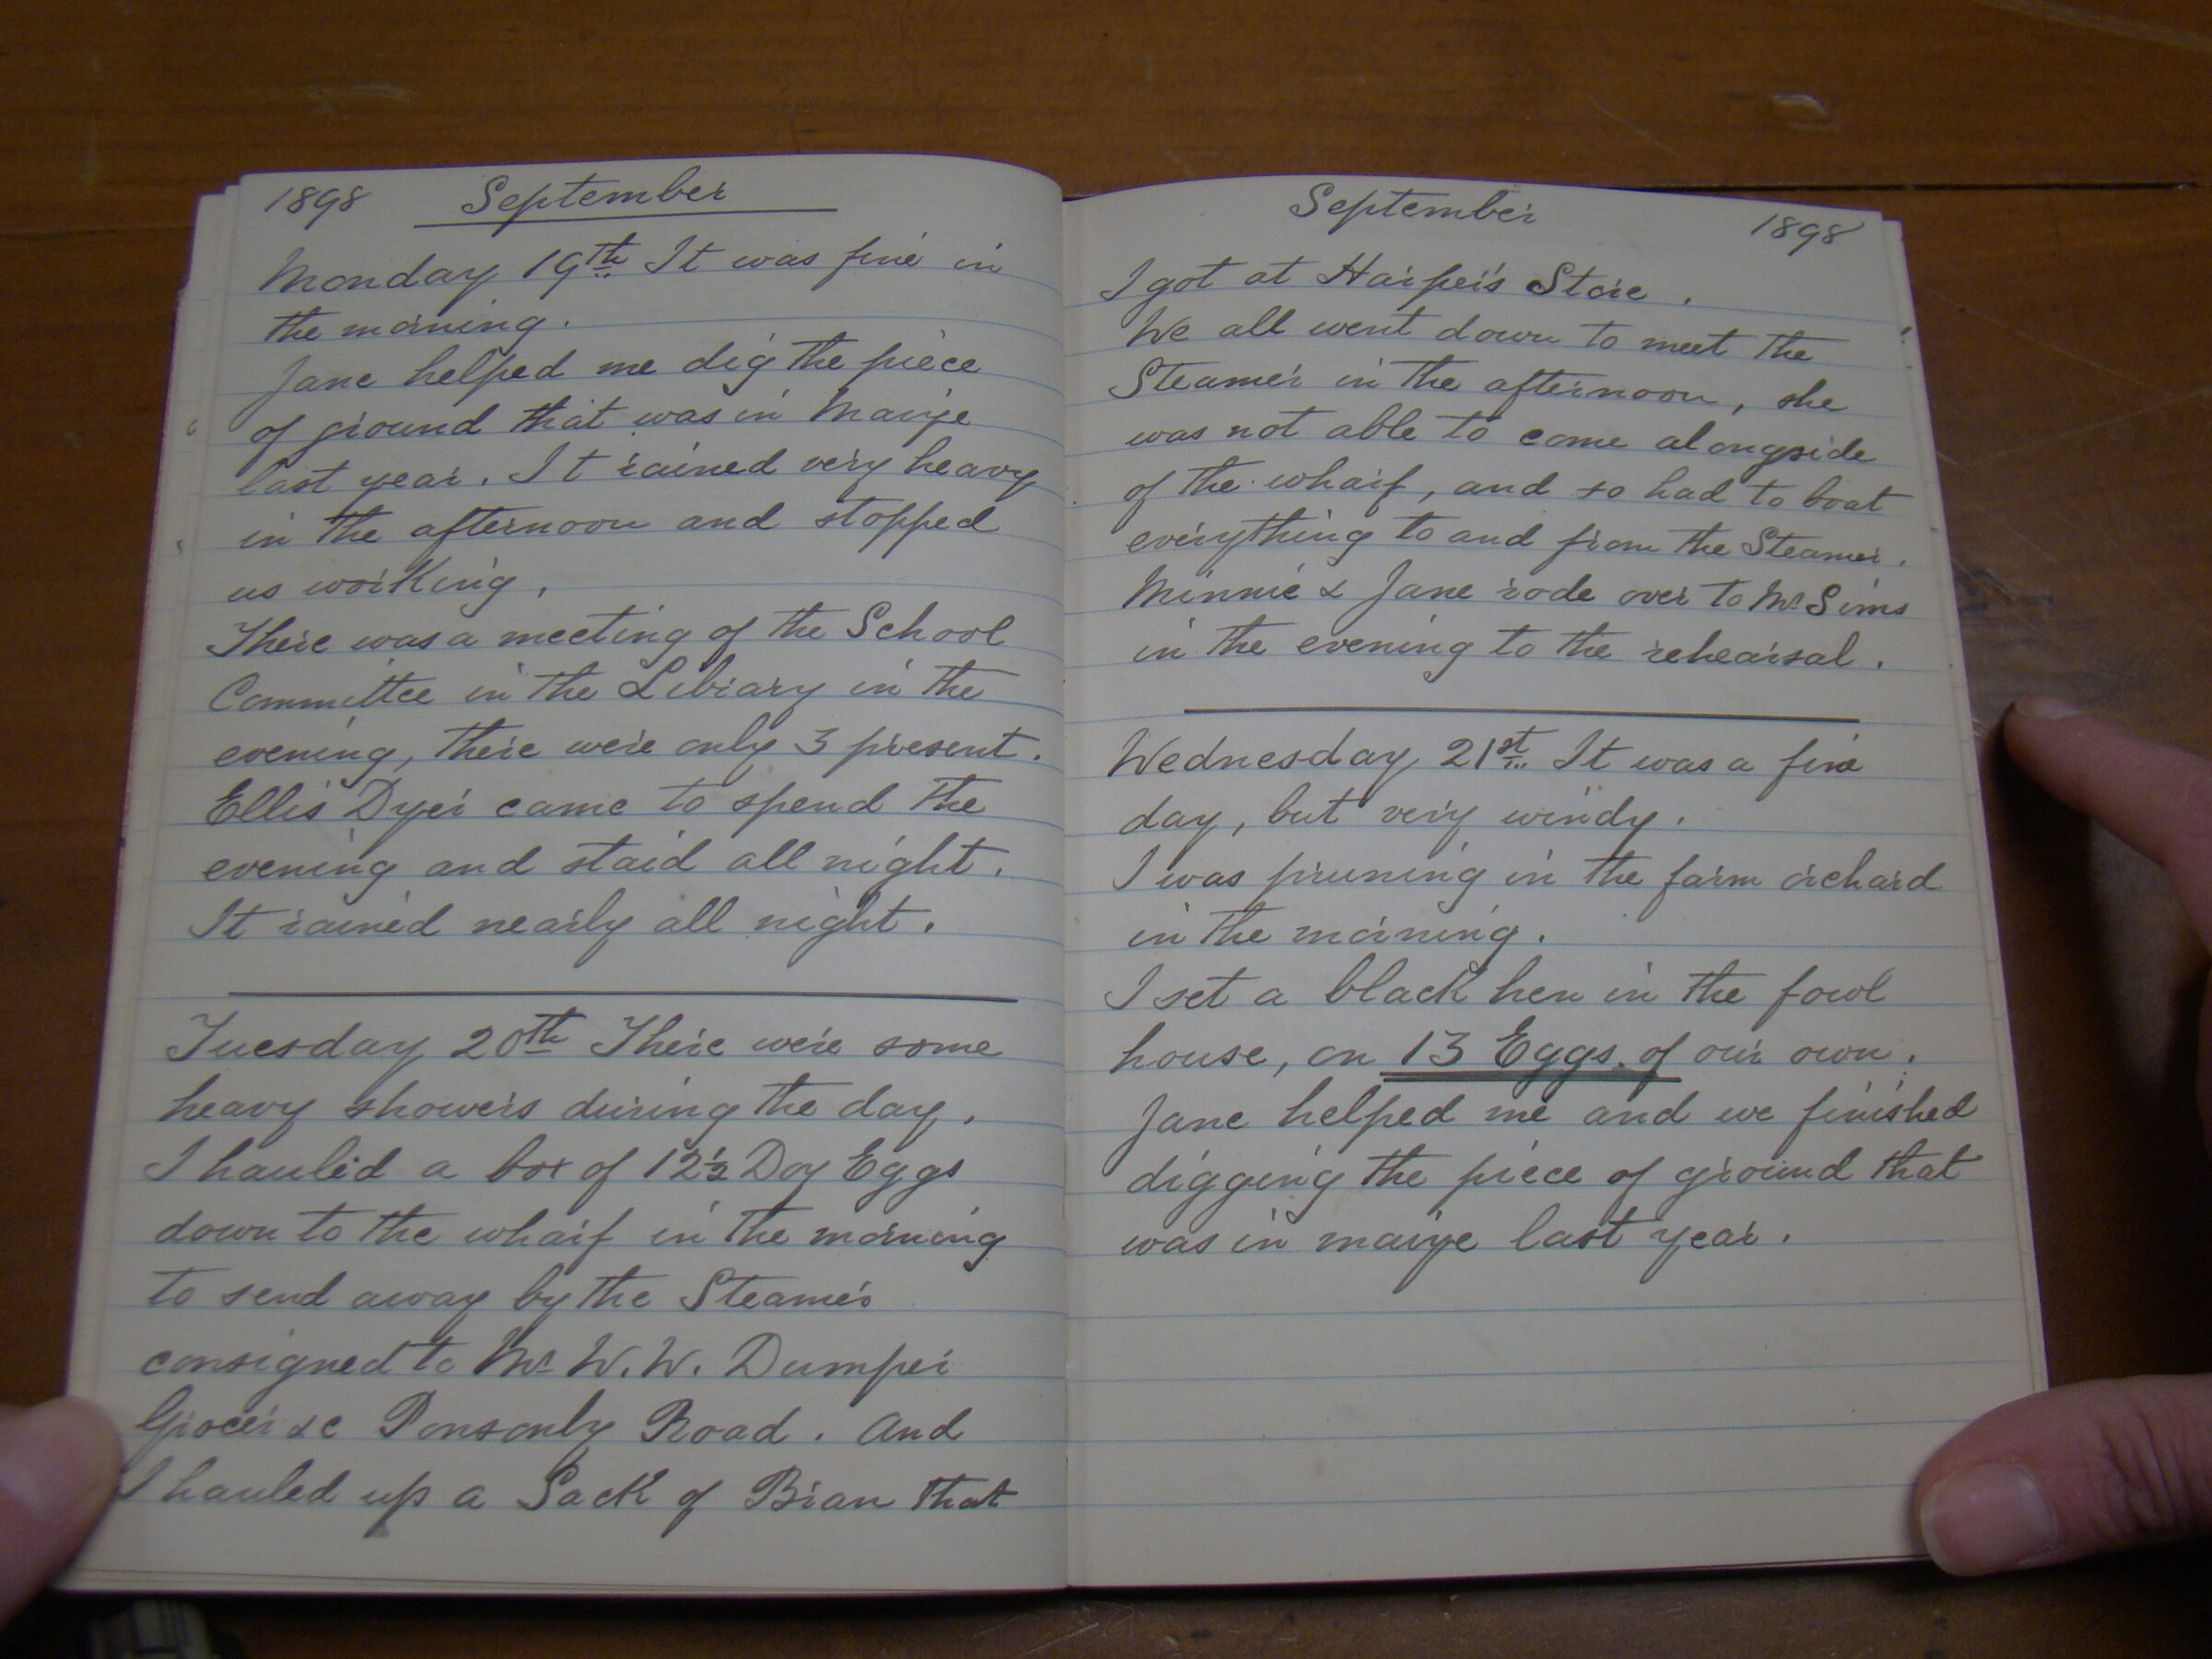 1898 September
Monday 19th It was fine in
the morning.
Jane helped me dig the piece
of ground that was in Maize
last year. It rained very heavy
in the afternoon and stopped
us working.
There was a meeting of the School
Committee in the Library in the
evening, there were only 3 present.
Ellis Dyer came to spend the
evening and staid all night.
It rained nearly all night.
Tuesday 20th There were some
heavy showers during the day.
I hauled a box of 12½ Doz Eggs
down to the wharf in the morning
to send away by the Steamer
consigned to Mr W. W. Dumper
Grocer &c Ponsonby Road. And
I hauled up a Sack of Bran that
September 1898
I got at Harper's Store.
We all went down to meet the
Steamer in the afternoon, she
was not able to come alongside
of the wharf, and so had to boat
everything to and from the Steamer.
Minnie & Jane rode over to Mr Sims
in the evening to the rehearsal.
Wednesday 21st It was a fine
day, but very windy.
I was pruning in the farm orchard
in the morning.
I set a black hen in the fowl
house, on 13 Eggs of our own.
Jane helped me and we finished
digging the piece of ground that
was in maize last year.